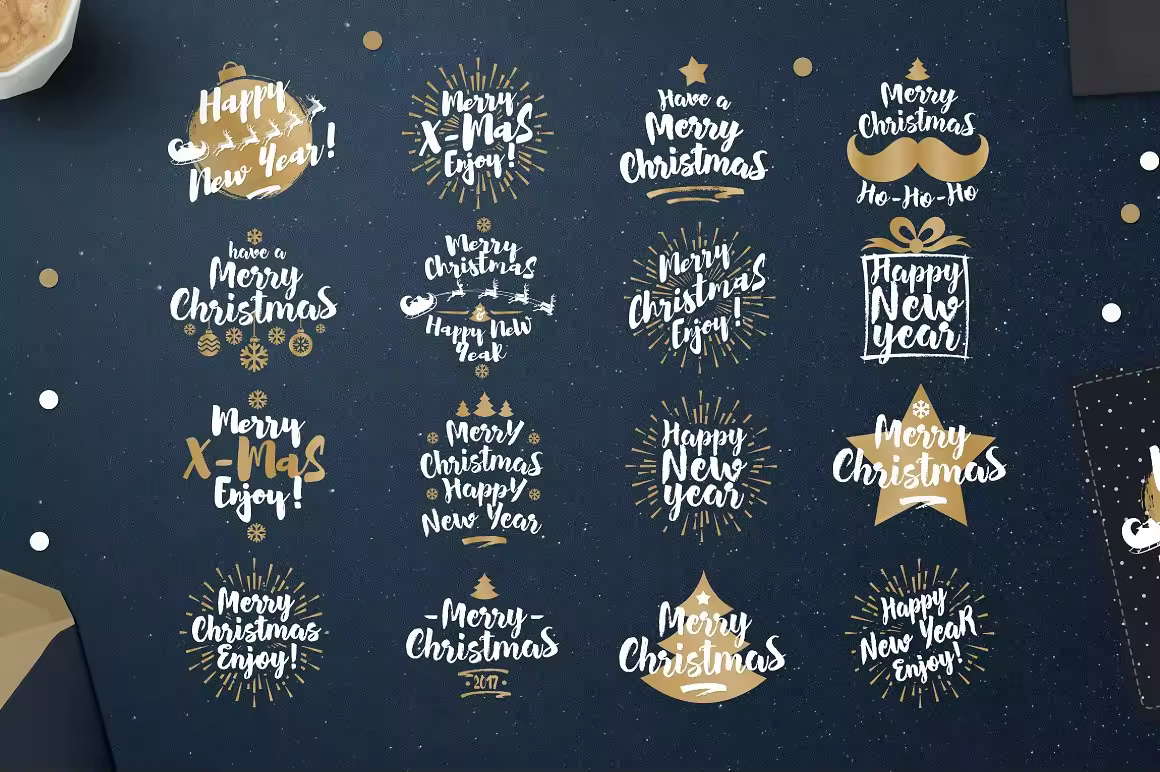 Happy
New Year!
Merry
X-MaS
Enjoy!
Have a
Merry
Christmas
Merry
Christmas
Ho-Ho-Ho
have a
Merry
Christmas
Merry
Christmas
&
Happy New
YeaR
Merry
Christmas
Enjoy!
Happy
New
year
Merry
X-MaS
Enjoy!
MerrY
Christmas
HappY
New Year
Happy
New
year
Merry
Christmas
Merry
Christmas
Enjoy!
-Merry-
Christmas
2017
Merry
Christmas
Happy
New YeaR
Enjoy!